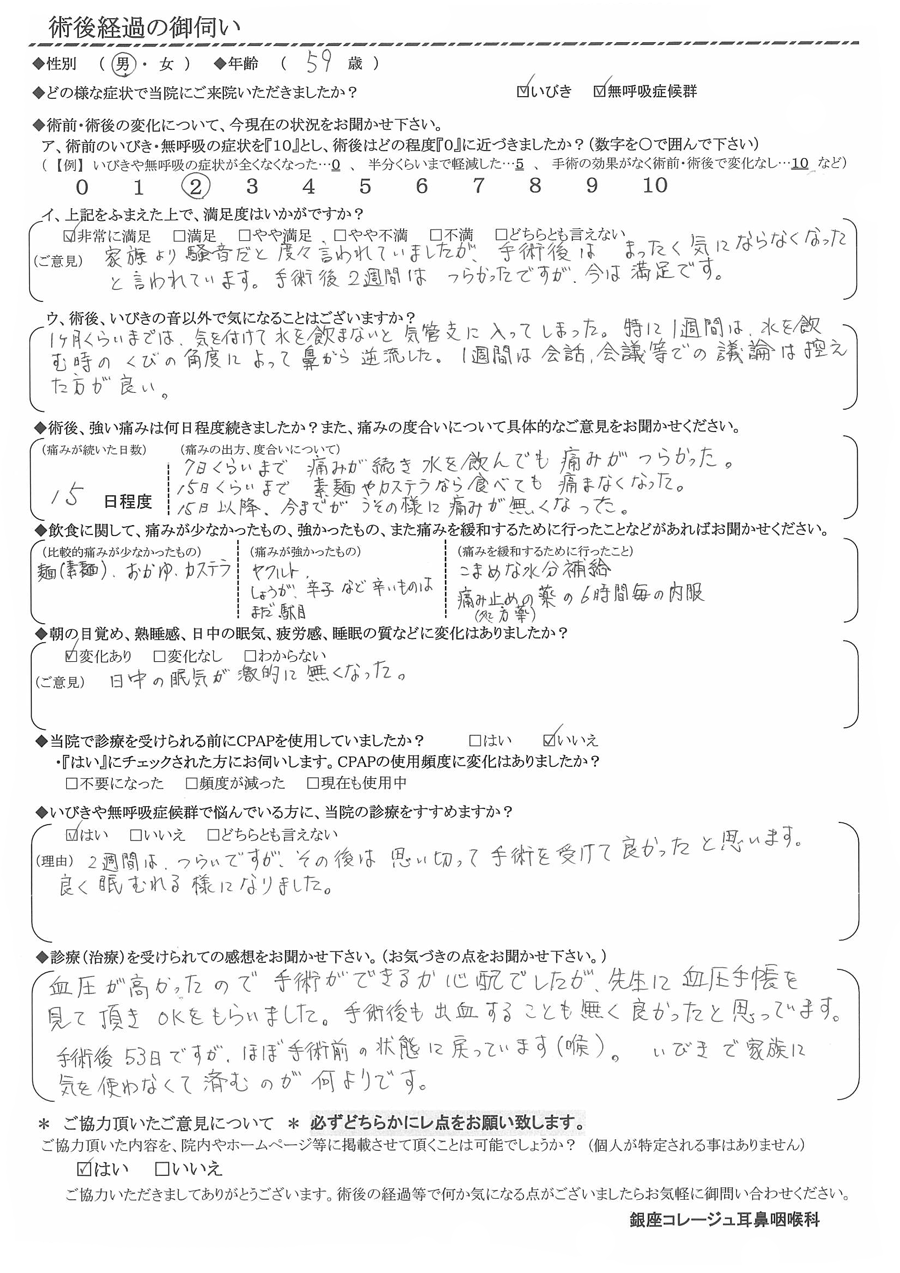 術後経過の御伺い
◆性別 （ 男 ・ 女 ） ◆年齢 （ 59 歳 ）
◆どの様な症状で当院にご来院いただきましたか？ ☑いびき ☑無呼吸症候群
◆術前・術後の変化について、今現在の状況をお聞かせ下さい。
ア、術前のいびき・無呼吸の症状を『10』とし、術後はどの程度『0』に近づきましたか？（数字を〇で囲んで下さい）
（【例】 いびきや無呼吸の症状が全くなくなった…0 、 半分くらいまで軽減した…5 、 手術の効果がなく術前・術後で変化なし…10 など）
0 1 2 3 4 5 6 7 8 9 10
イ、上記をふまえた上で、満足度はいかがですか？
☑非常に満足 □満足 □やや満足 □やや不満 □不満 □どちらとも言えない
（ご意見） 家族より騒音だと度々言われていましたが、手術後は まったく気にならなくなった
と言われています。手術後2週間は つらかったですが、今は満足です。
ウ、術後、いびきの音以外で気になることはございますか？
1ヶ月くらいまでは、気を付けて水を飲まないと気管支に入ってしまった。特に1週間は、水を飲
む時のくびの角度によって鼻から逆流した。1週間は会話、会議等での議論は控え
た方が良い。
◆術後、強い痛みは何日程度続きましたか？また、痛みの度合いについて具体的なご意見をお聞かせください。
（痛みが続いた日数） （痛みの出方、度合いについて）
7日くらいまで 痛みが続き水を飲んでも痛みがつらかった。
15 日程度 15日くらいまで 素麺やカステラなら食べても 痛まなくなった。
15日以降、今までがうその様に痛みが無くなった。
◆飲食に関して、痛みが少なかったもの、強かったもの、また痛みを緩和するために行ったことなどがあればお聞かせください。
（比較的痛みが少なかったもの） （痛みが強かったもの） （痛みを緩和するために行ったこと）
麺（素麺）、おかゆ、カステラ ヤクルト、 こまめな水分補給
しょうが、辛子など辛いものは 痛み止めの薬の6時間毎の内服
まだ駄目 （処方薬）
◆朝の目覚め、熟睡感、日中の眠気、疲労感、睡眠の質などに変化はありましたか？
☑変化あり □変化なし □わからない
（ご意見） 日中の眠気が激的に無くなった。
◆当院で診療を受けられる前にCPAPを使用していましたか？ □はい ☑いいえ
・『はい』にチェックされた方にお伺いします。CPAPの使用頻度に変化はありましたか？
□不要になった □頻度が減った □現在も使用中
◆いびきや無呼吸症候群で悩んでいる方に、当院の診療をすすめますか？
☑はい □いいえ □どちらとも言えない
（理由） 2週間は、つらいですが、その後は 思い切って手術を受けて良かったと思います。
良く眠むれる様になりました。
◆診療（治療）を受けられての感想をお聞かせ下さい。（お気づきの点をお聞かせ下さい。）
血圧が高かったので手術ができるか心配でしたが、先生に血圧手帳を
見て頂きOKをもらいました。手術後も出血することも無く良かったと思っています。
手術後53日ですが、ほぼ手術前の状態に戻っています（喉）。 いびきで家族に
気を使わなくて済むのが何よりです。
＊ ご協力頂いたご意見について ＊ 必ずどちらかにレ点をお願い致します。
ご協力頂いた内容を、院内やホームページ等に掲載させて頂くことは可能でしょうか？（個人が特定される事はありません）
☑はい □いいえ
ご協力いただきましてありがとうございます。術後の経過等で何か気になる点がございましたらお気軽に御問い合わせください。
銀座コレージュ耳鼻咽喉科